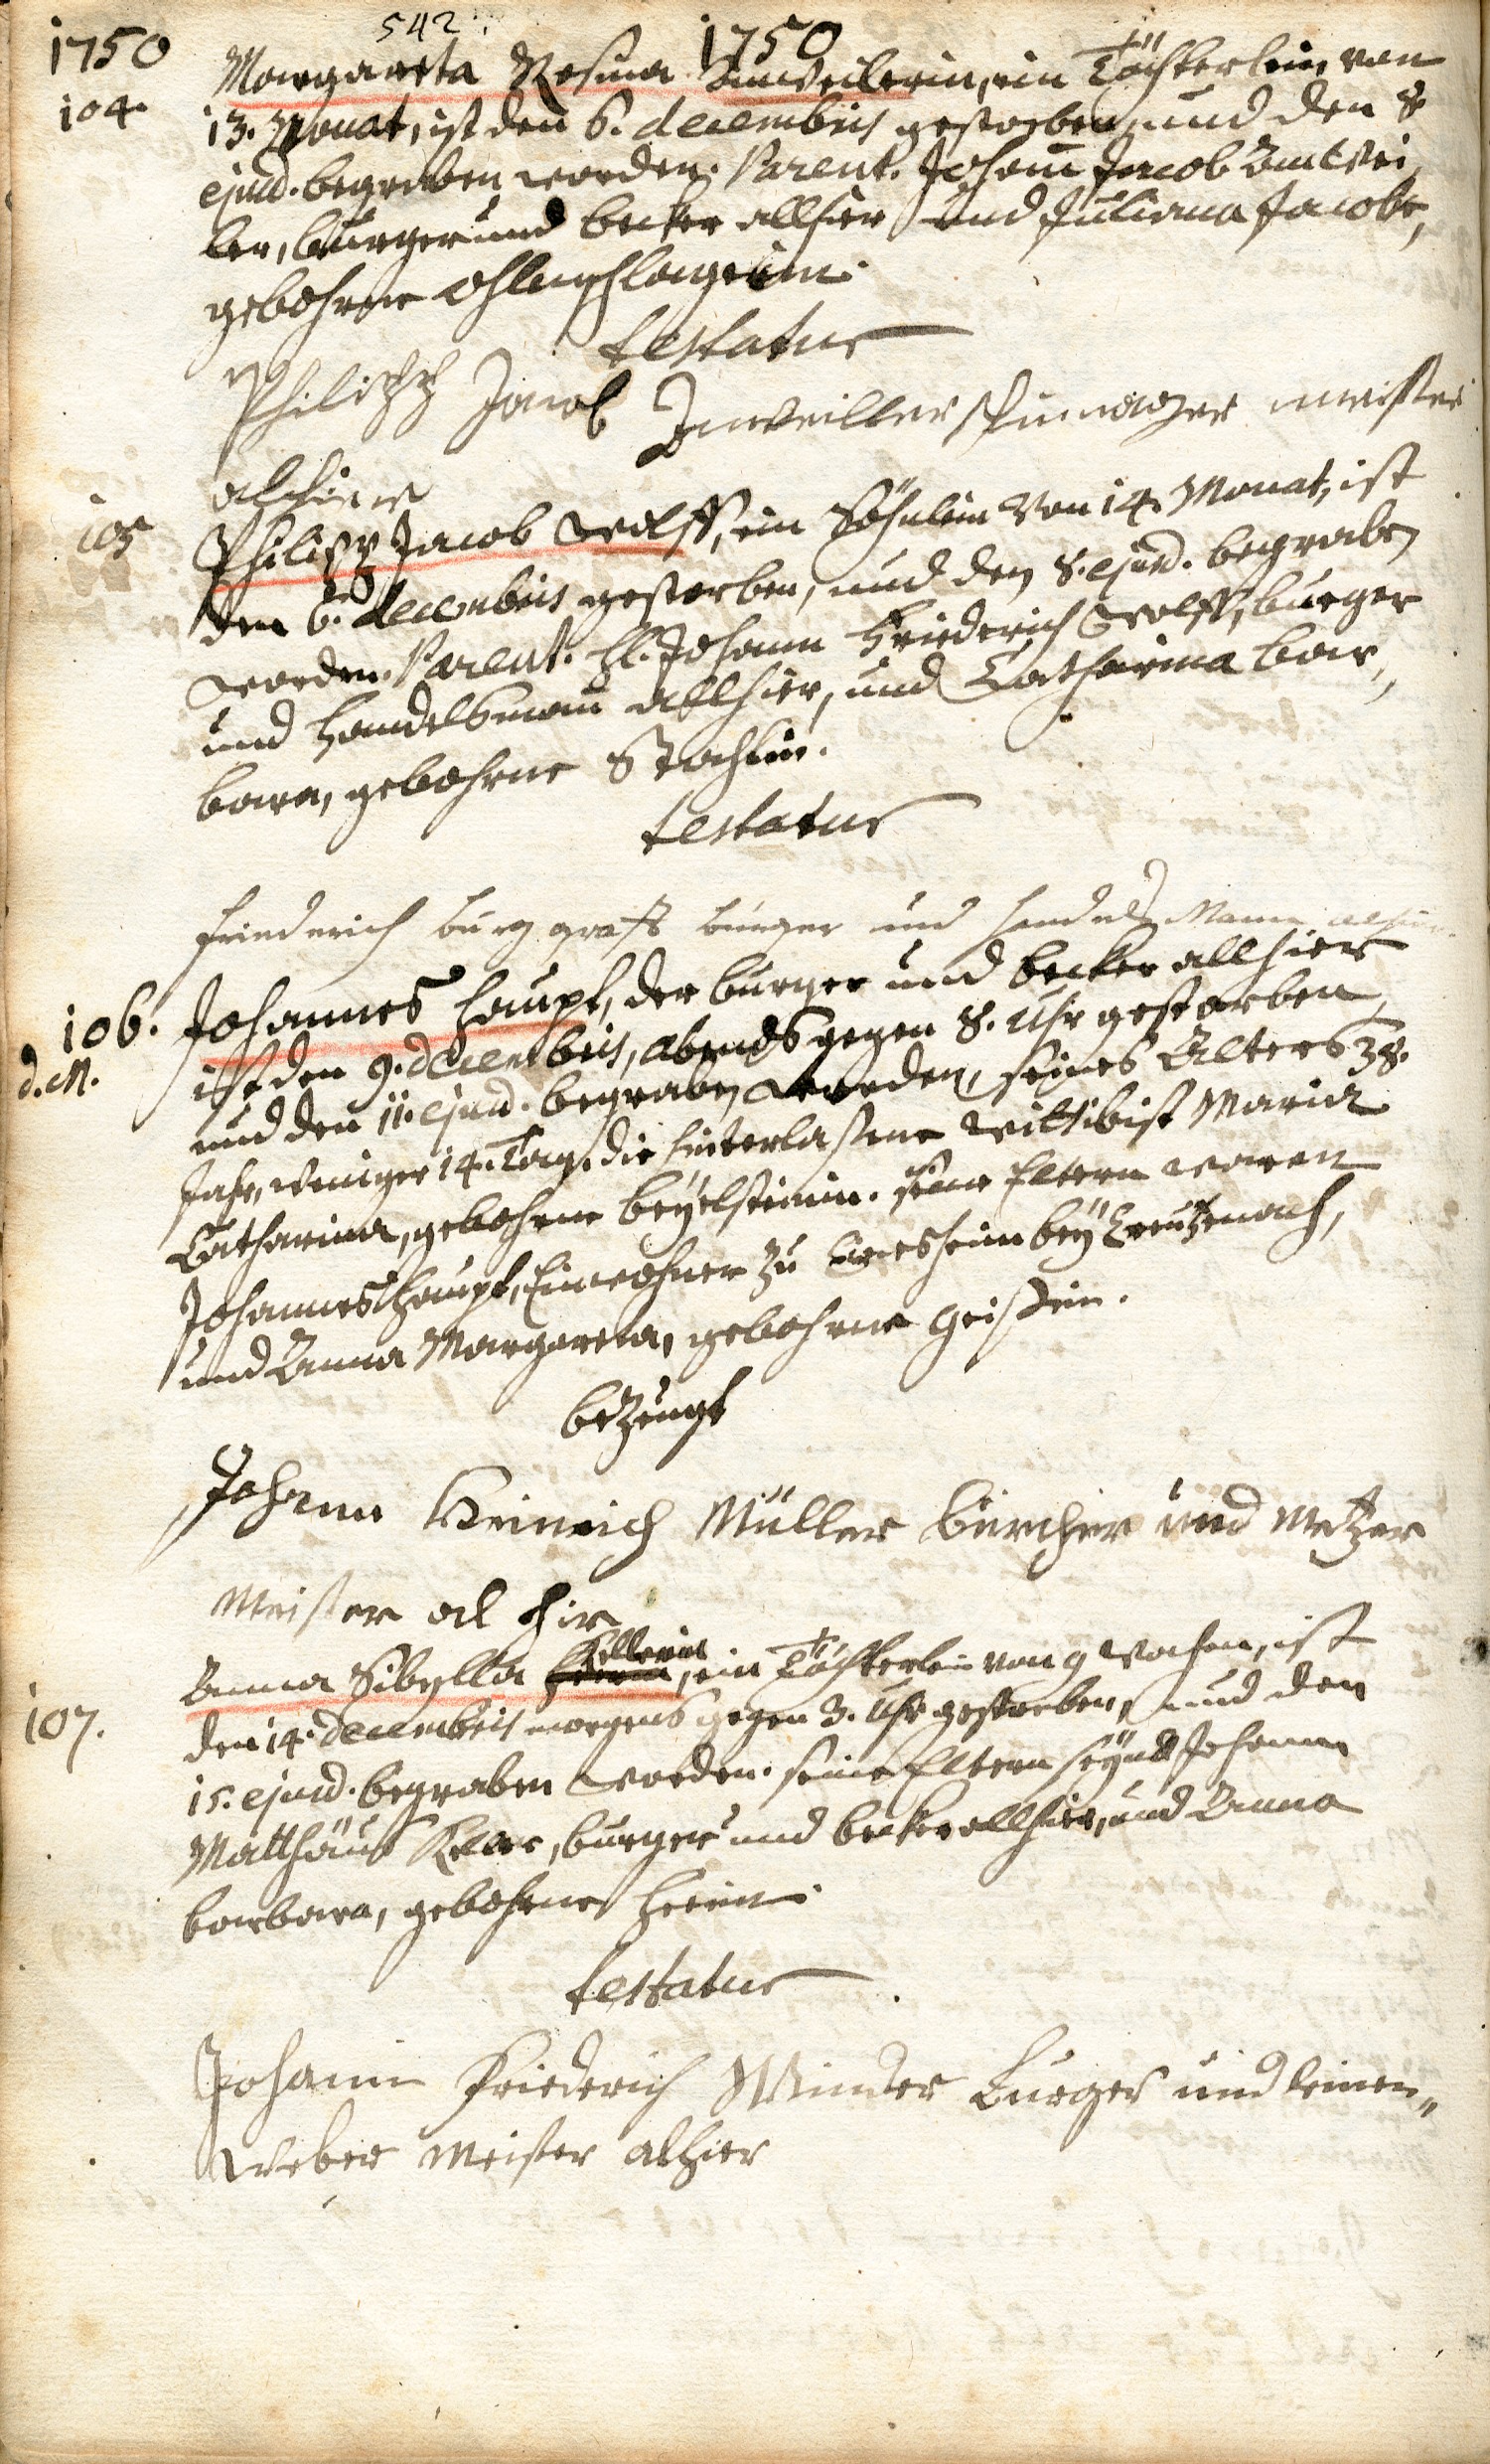 542.
1750 1750
104. Margareta Rosina Annweilerin, ein Töchterlein von
13. Monat, ist den 6. decembris gestorben, und den 8
ejusd. begraben worden. Parent. Johann Jacob Annwei¬
ler, burger und becker allhier und Juliana Jacobe,
gebohrne Ohlenschlagerin.
testatur
Philipp Jacob Anweiller schumacher meister
alhier
105 Philipp Jacob Wolff, ein Söhnlein von 14. Monat, ist
den 6. decembris gestorben, und den 8. ejusd. begraben
worden. Parent. H. Johann Friederich Wolff, burger
und handelsmann allhier, und Catharina Bar¬
bara, gebohrne
testatur
friederich burggraff burger und handels Mann alhier
106. Johannes Haupt, der burger und becker allhier
d. M. ist den 9. decembris, abends gegen 8. Uhr gestorben,
und den 11. ejusd. begraben worden, seines Alters 38.
Jahr, weniger 14. Tag. die hinterlaßene wittib ist Maria
Catharina, gebohrne Beyelsteinin. seine Eltern waren
Johannes Haupt, Einwohner zu bey Creutznach,
und Anna Margareta, gebohrne Geißin.
bezeugt
Johann Heinrich Müller bürcher und Metzer
Meister al hir
107. Anna Sibylla Kellerin, ein Töchterlein von 9 wochen, ist
den 14. decembris morgens gegen 3. Uhr gestorben, und den
15. ejusd. begraben worden. seine Eltern seynd Johann
Matthäus Keller, burger und becker allhier, und Anna
barbara, gebohrne
testatur
Johann Friederich Minder Burger und leinen¬
weber Meister alhier